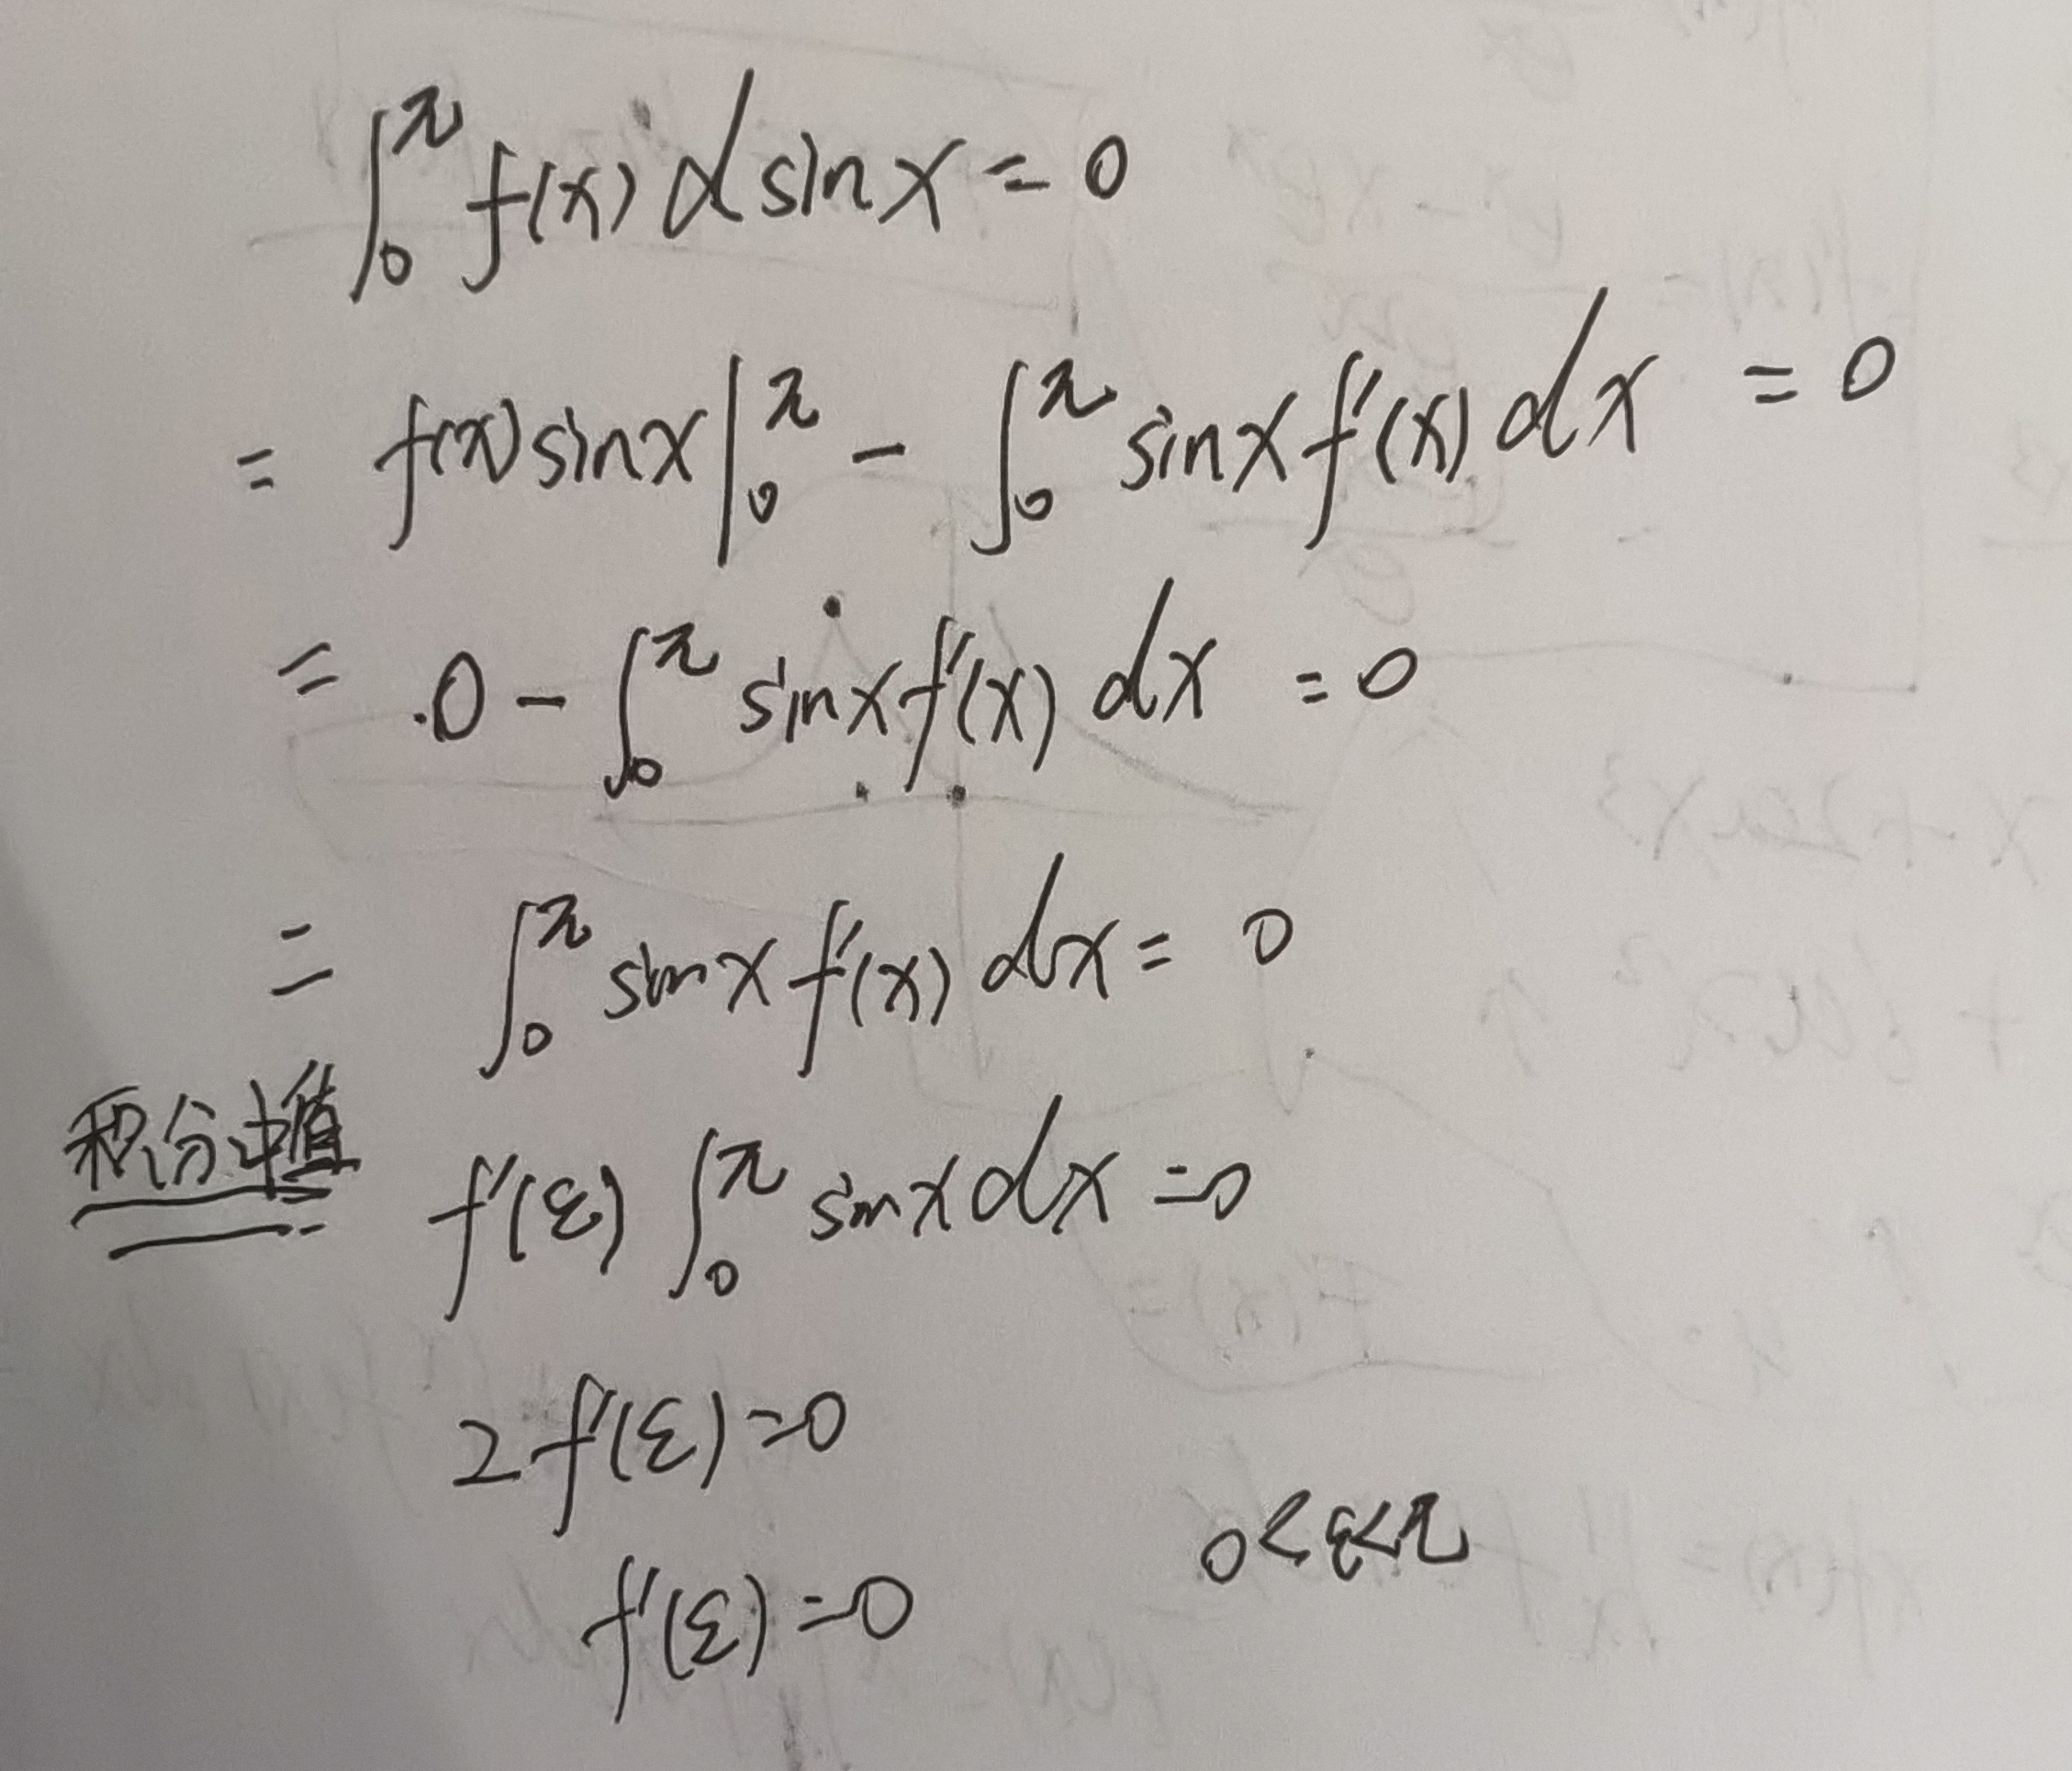 ∫₀^π f(x) d sinx = 0
= f(x) sinx |₀^π - ∫₀^π sinx f'(x) dx = 0
= 0 - ∫₀^π sinx f'(x) dx = 0
= ∫₀^π sinx f'(x) dx = 0
积分中值 f'(ε) ∫₀^π sinx dx = 0
2f'(ε) = 0
0<ε<π
f'(ε) = 0